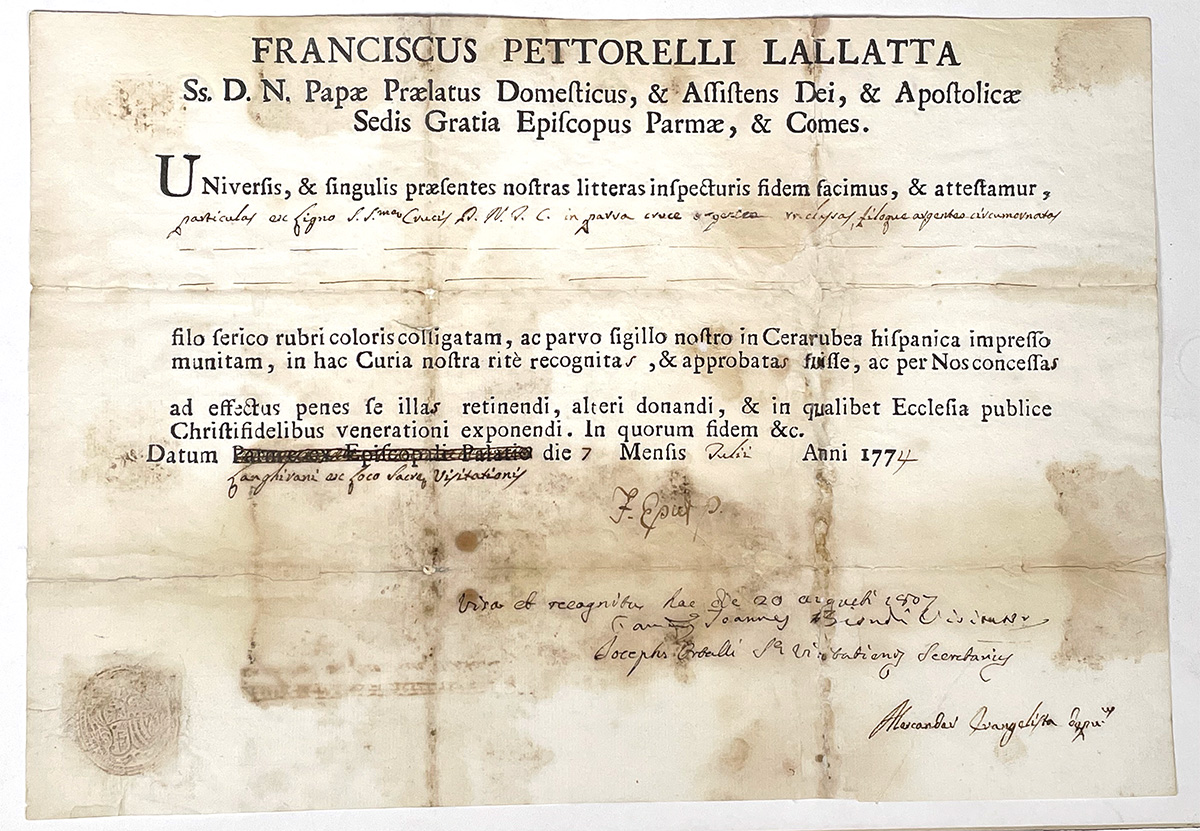 FRANCISCUS PETTORELLI LALLATTA
Ss. D. N. Papæ Prælatus Domeſticus, & Aſſiſtens Dei, & Apoſtolicæ
Sedis Gratia Epiſcopus Parmæ, & Comes.
UNiverſis, & ſingulis præſentes noſtras litteras inſpecturis fidem facimus, & atteſtamur,
particulas ex Ligno S. S.mae Crucis D. N. J. C. in parva cruce inclusas, filoque argenteo circumornatas
filo ſerico rubri coloris colligatam, ac parvo ſigillo noſtro in Cerarubea hiſpanica impreſſo
munitam, in hac Curia noſtra ritè recognitas, & approbatas fuiſſe, ac per Nos conceſſas
ad effectus penes ſe illas retinendi, alteri donandi, & in qualibet Eccleſia publice
Chriſtifidelibus venerationi exponendi. In quorum fidem &c.
Datum Parmæ ex Epiſcopali Palatio die 7 Mensis Julii Anni 1774
Langhirani ex Loco Sacræ Visitationis
F. Epus P.
Visa et recognita hac die 20 augusti 1807
Joannes Visitator
Joseph Visitationis Secretarius
Alexander Evangelista